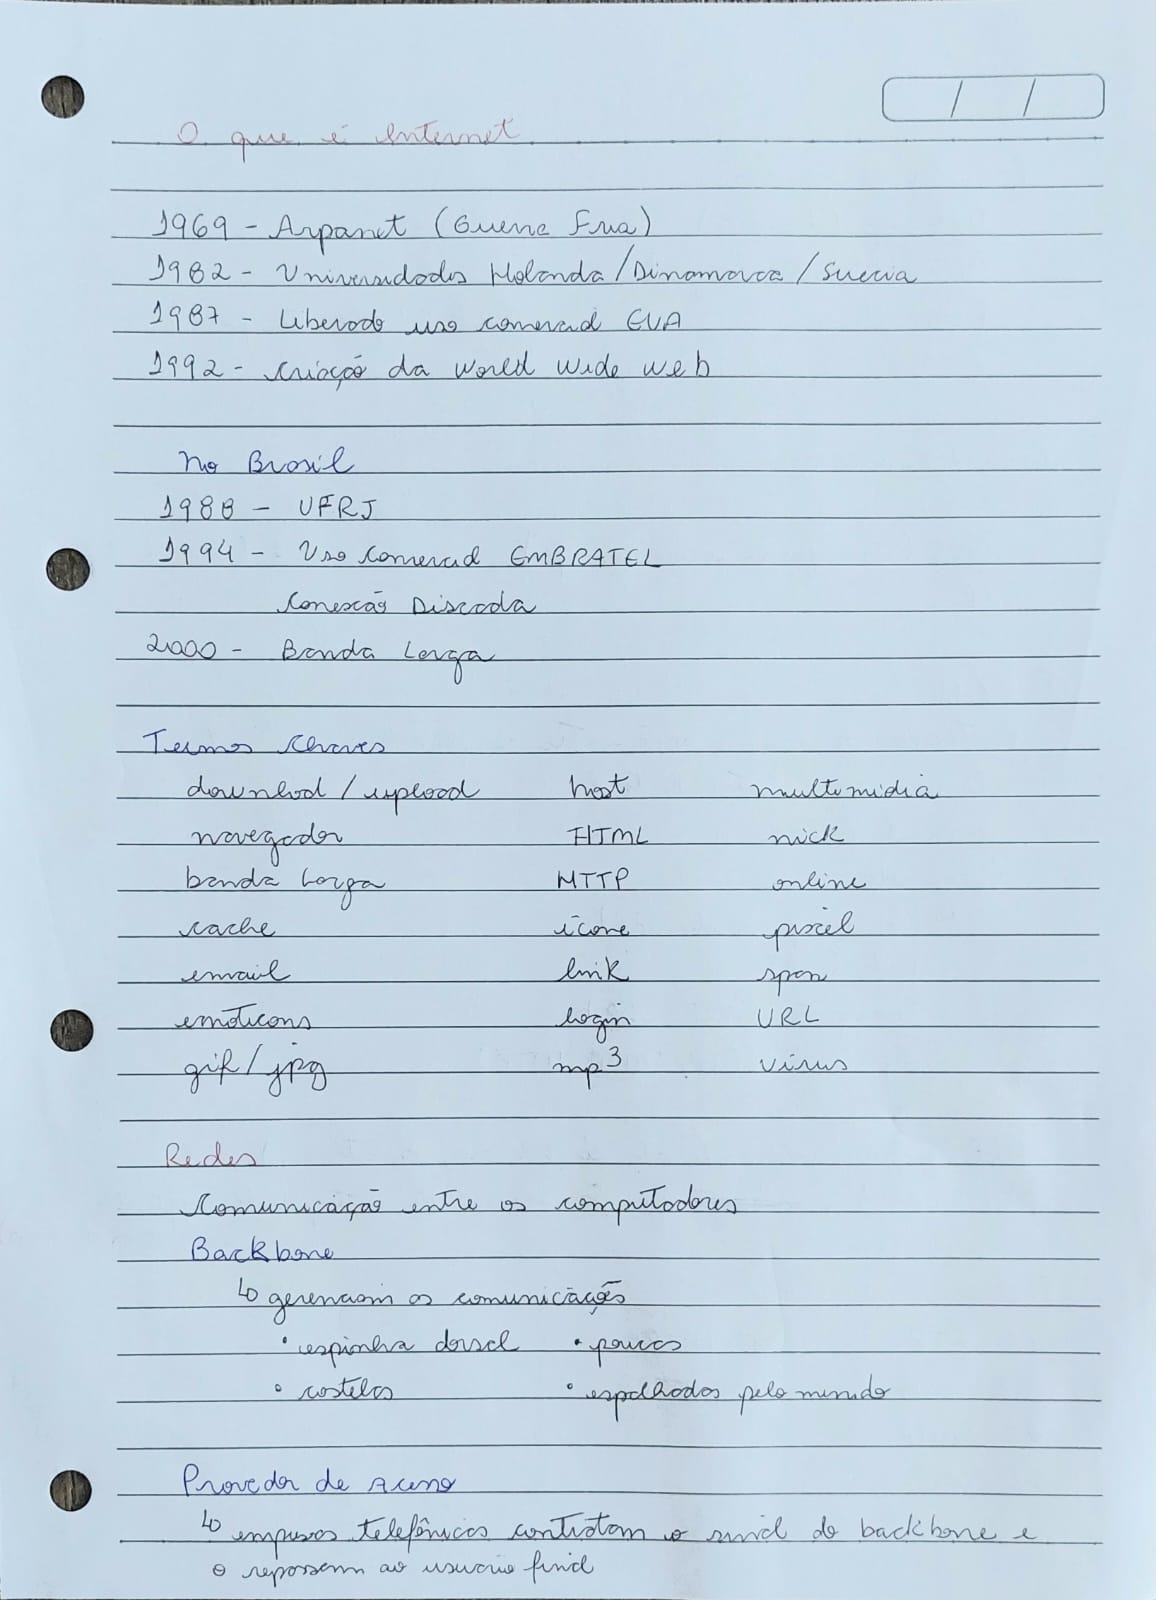 O que é Internet
1969 - Arpanet (Guerra Fria)
1982 - Universidades Holanda/Dinamarca/Suecia
1987 - Liberado uso comercial EUA
1992 - Criação da World Wide Web
No Brasil
1988 - UFRJ
1994 - Uso Comercial EMBRATEL
Conexão Discada
2000 - Banda Larga
Termos Chaves
downlod / upload host multimidia
navegador HTML nick
banda larga HTTP online
cache ícone pixel
email link span
emoticons login URL
gif/jpg mp3 vírus
Redes
Comunicação entre os computadores
Backbone
↳ gerenciam as comunicações
• espinha dorsal • poucos
• costelas • espalhados pelo mundo
Provedor de Acesso
↳ empresas telefônicas contratam o sinal do backbone e
o repassam ao usuario final